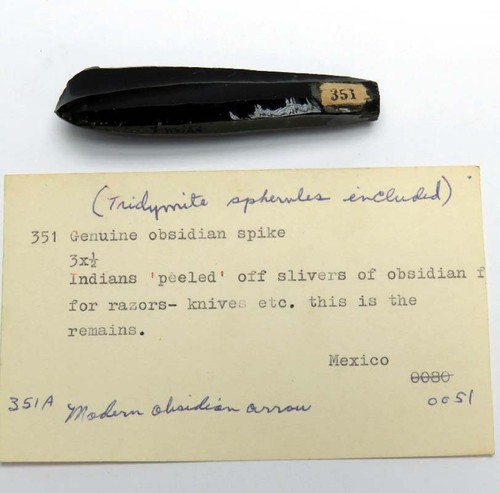 351
(Tridymite spherules included)
351 Genuine obsidian spike
3x½
Indians 'peeled' off slivers of obsidian f
for razors- knives etc. this is the
remains.
Mexico
0080
0051
351A Modern obsidian arrow